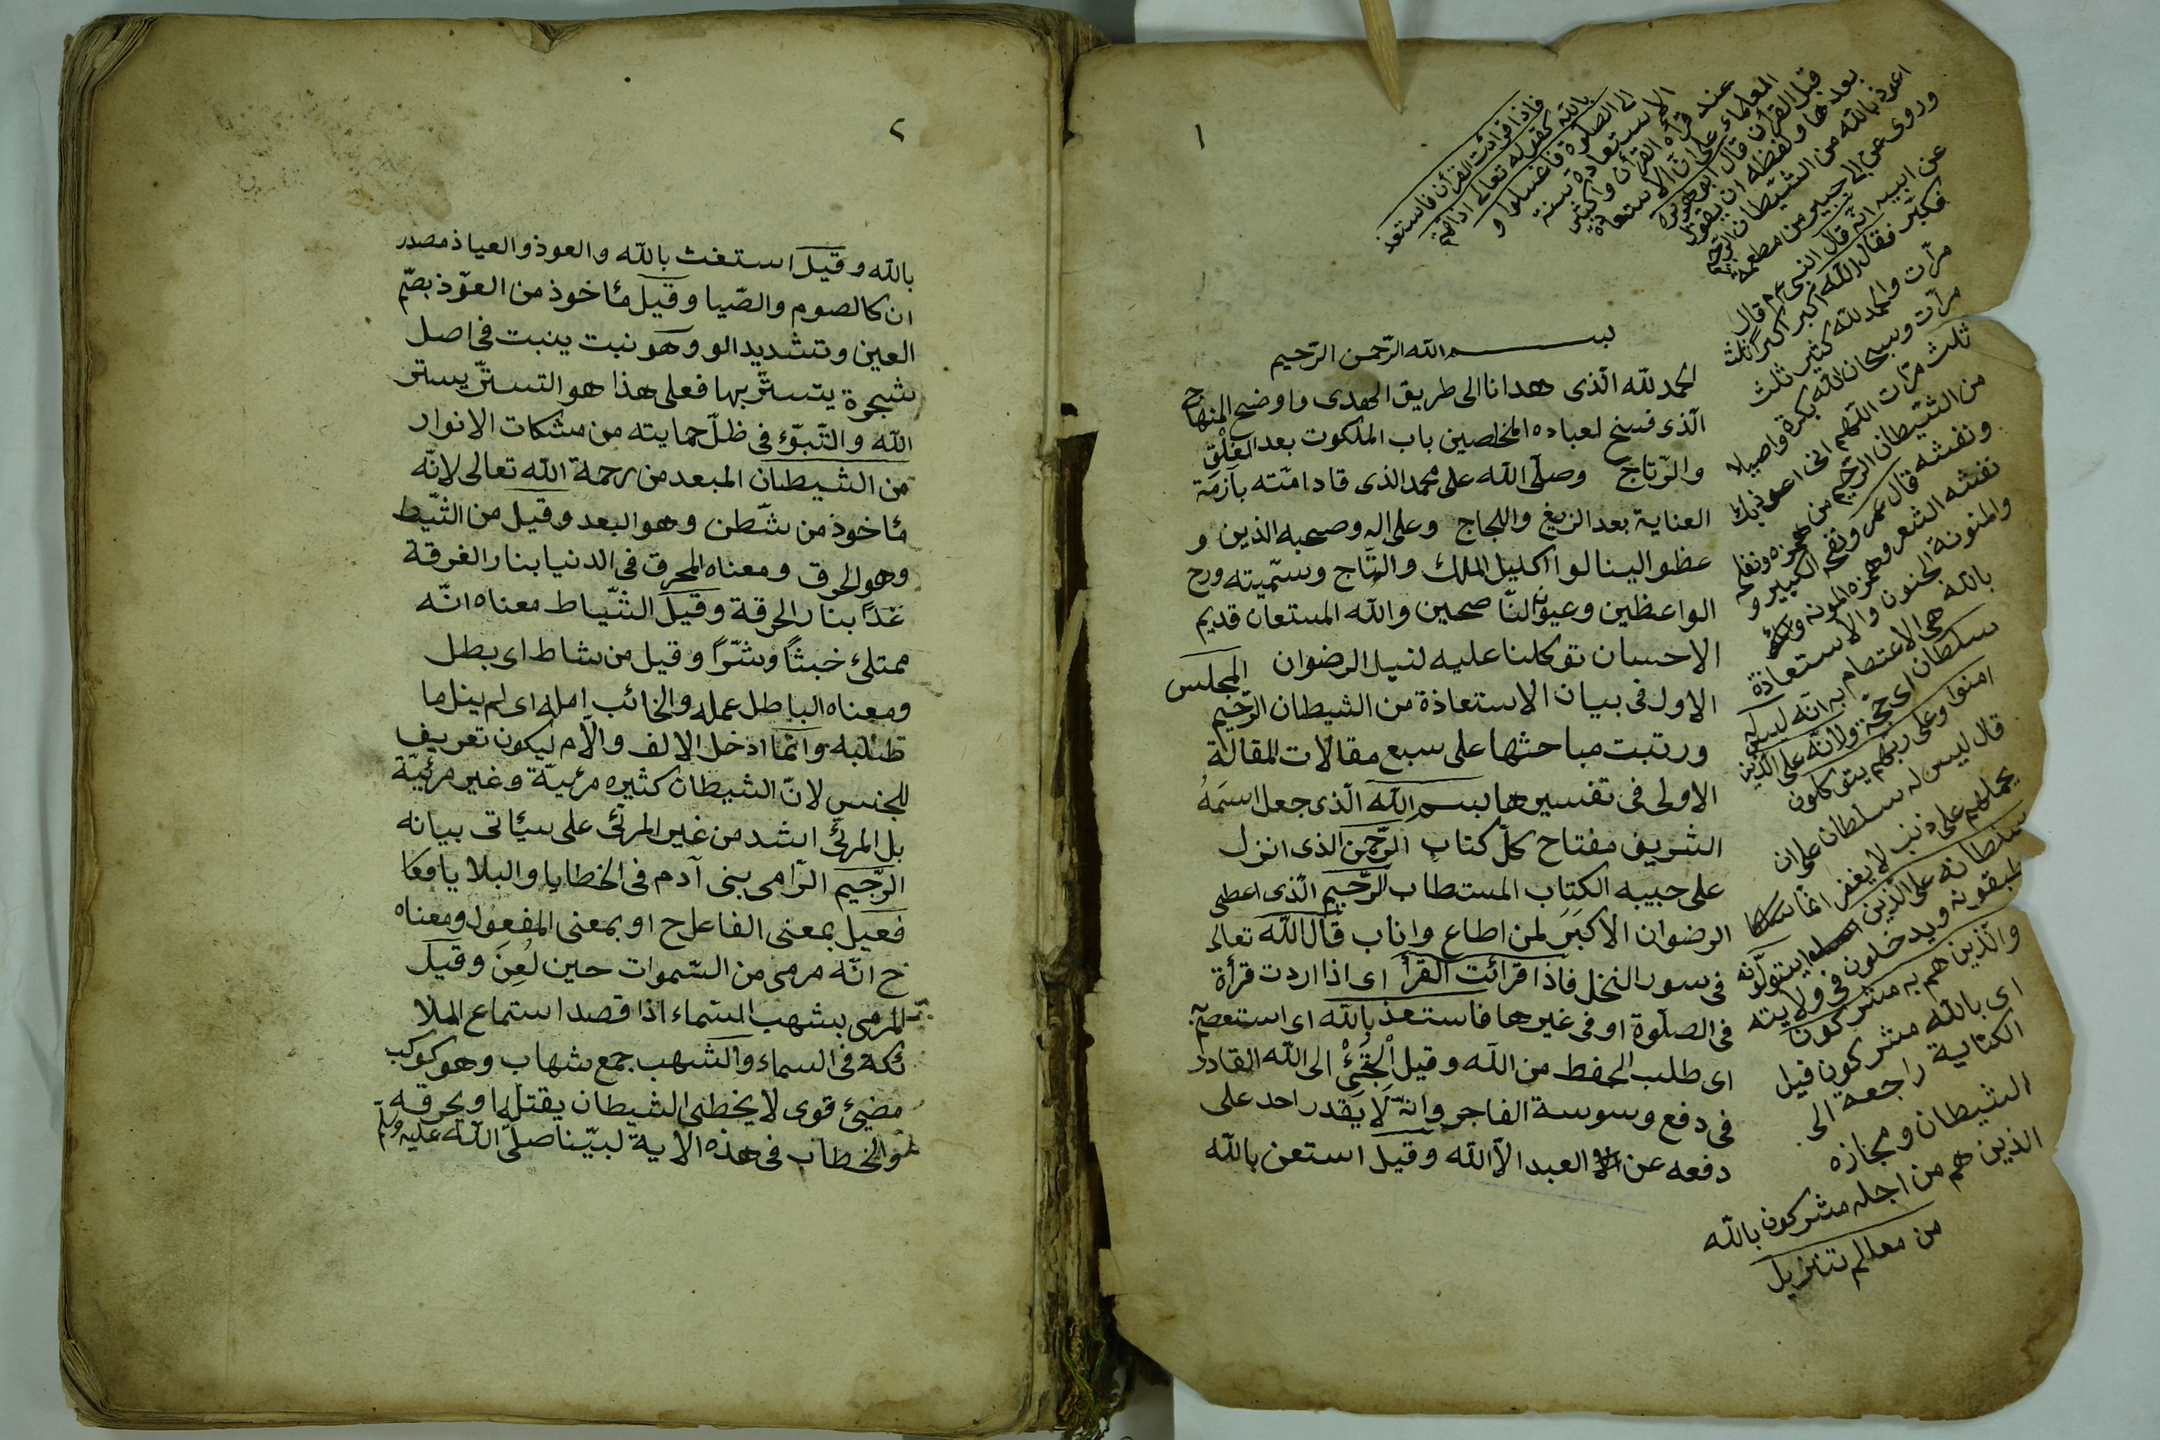 ١
بسم الله الرّحمن الرّحيم
الحمد لله الّذى هدانا الى طريق الهدى واوضح المنهاج
الّذى فسح لعباده المخلصين باب الملكوت بعد المغلق
والرّتاج وصلّى الله على محمد الذى قاد امّته بازمّة
العناية بعد الزيغ واللجاج وعلى اله وصحبه الذين و
عظوا لينالوا اكليل الملك والتّاج وسمّيته ورح
الواعظين وعيون النّاصحين والله المستعان قديم
الاحسان توكلنا عليه لنيل الرضوان المجلس
الاول فى بيان الاستعاذة من الشيطان الرّجيم
ورتبت مباحثها على سبع مقالات المقالة
الاولى فى تفسيرها بسم الله الّذى جعل اسمه
الشريف مفتاح كلّ كتاب الرّحمن الذى انزل
على حبيبه الكتاب المستطاب الرّحيم الّذى اعطى
الرضوان الأكبر لمن اطاع واناب قال الله تعالى
فى سور النحل فاذا قرائت القرأ اى اذا اردت قرأة
فى الصلوة او فى غيرها فاستعذ بالله اى استعصم
اى طلب الحفط من الله وقيل التجئ الى الله القادر
فى دفع وسوسة الفاجر وانّه لا يقدر احد على
دفعه عن العبد الاّ الله وقيل استعن بالله
فاذا قرائت القرأن فاستعذ
بالله كقوله تعالى اذا قمتم
الى الصلوة فاغسلوا و
الاستعاذة سنة
عند قرأة القرأن واكثر
العلماء على ان الاستعاذة
قبل القرأن قال ابو هريره
بعدها ولفظه ان يقول
اعوذ بالله من الشيطان الرجيم
وروى عن ابى جبير من مطعم
عن ابيه انّه قال النبى عم قال
فكبر فقال الله اكبر اكبرا ثلث
مرّات والحمد لله كثير ثلث
مرّات وسبحان الله بكرة واصيلا
ثلث مرّات اللّهم انى اعوذ بك
من الشيطان الرجيم من همزه ونفخه
ونفثه قال عمر ونفخه الكبير و
نفثه الشعر وهمزه المونه
والمنونة الجنون والاستعاذة
بالله هى الاعتصام به انّه ليس له
سلطان اى حجّة ولانّه على الذين
امنوا وعلى ربهم يتوكلون
قال ليس له سلطان على ان
يحملهم على ذنب لا يغفر انّما
سلطانه على الذين يتولّونه
ويدخلون فى ولايته
والّذين هم به مشركون
اى بالله مشركون قيل
الكناية راجعة الى
الشيطان ومجازه
الذين هم من اجله مشركون بالله
من معالم تنزيل
٢
بالله وقيل استغث بالله والعوذ والعياذ مصدر
ان كالصوم والصّيا وقيل مأخوذ من العوّذ بضّم
العين وتشديد الو وهو نبت ينبت فى اصل
شجرة يتستّر بها فعلى هذا هو التستّر بستر
الله والتّبوّء فى ظلّ حمايته من مشكات الانوار
من الشيطان المبعد من رحمة الله تعالى لانّه
مأخوذ من شّطن وهو البعد وقيل من الشّيط
وهو الحرق ومعناه المحرق فى الدنيا بنار الفرقة
غدًا بنار الحرقة وقيل الشّياط معناه انّه
ممتلئ خبثًا وشرًّا وقيل من شاط اى بطل
ومعناه الباطل عمله والخائب امله اى لم ينل ما
طلبه وانّما ادخل الالف والّام ليكون تعريف
للجنس لانّ الشيطان كثيره مرئيّة وغير مرئيّة
بل المرئى اشد من غير المرئى على سيأتى بيانه
الرّجيم الرّامى بنى آدم فى الخطايا والبلايا فعكا
فعيل بمعنى الفاعل ح او بمعنى المفعول ومعناه
ح انّه مرمى من السّموات حين لُعِنَ وقيل
المرمى بشهب السّماء اذا قصد استماع الملا
ئكة فى السماء والشهب جمع شهاب وهو كوكب
مضئ قوى لا يخطى الشيطان يقتله او يحرقه
والخطاب فى هذه الاية لبيّنا صلّى الله عليه وسلّم